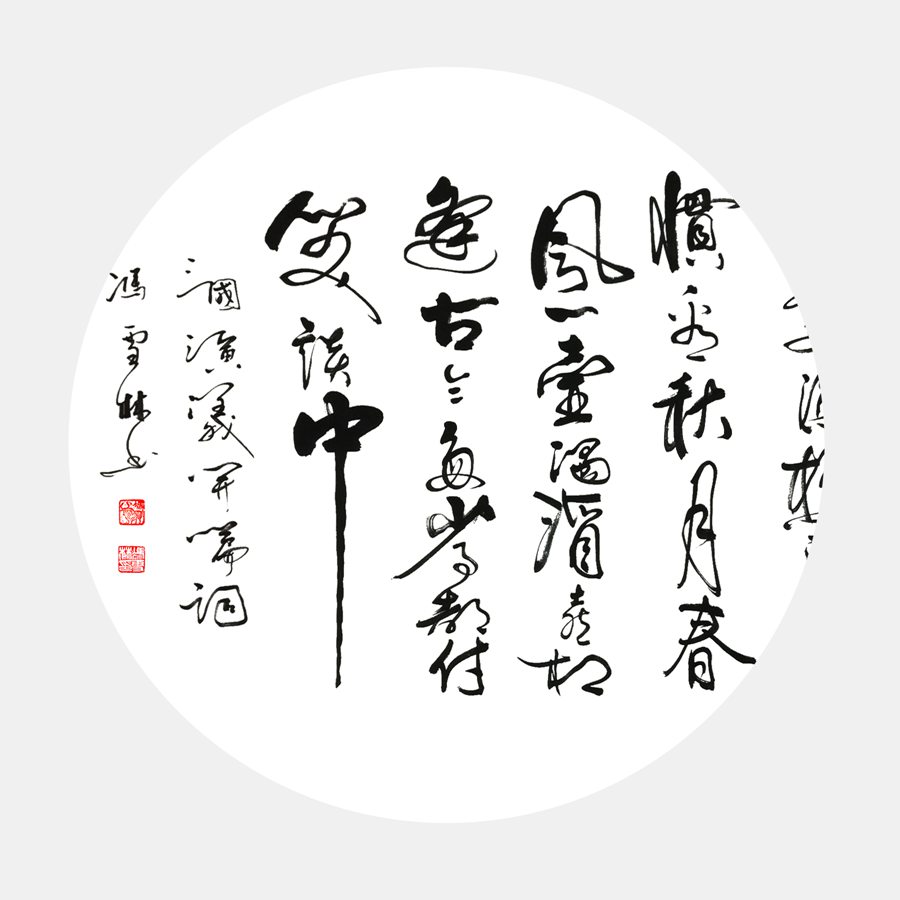 慣看秋月春
風一壺濁酒喜相
逢古今多少事都付
笑談中
三國演義開篇詞
馮雪林书